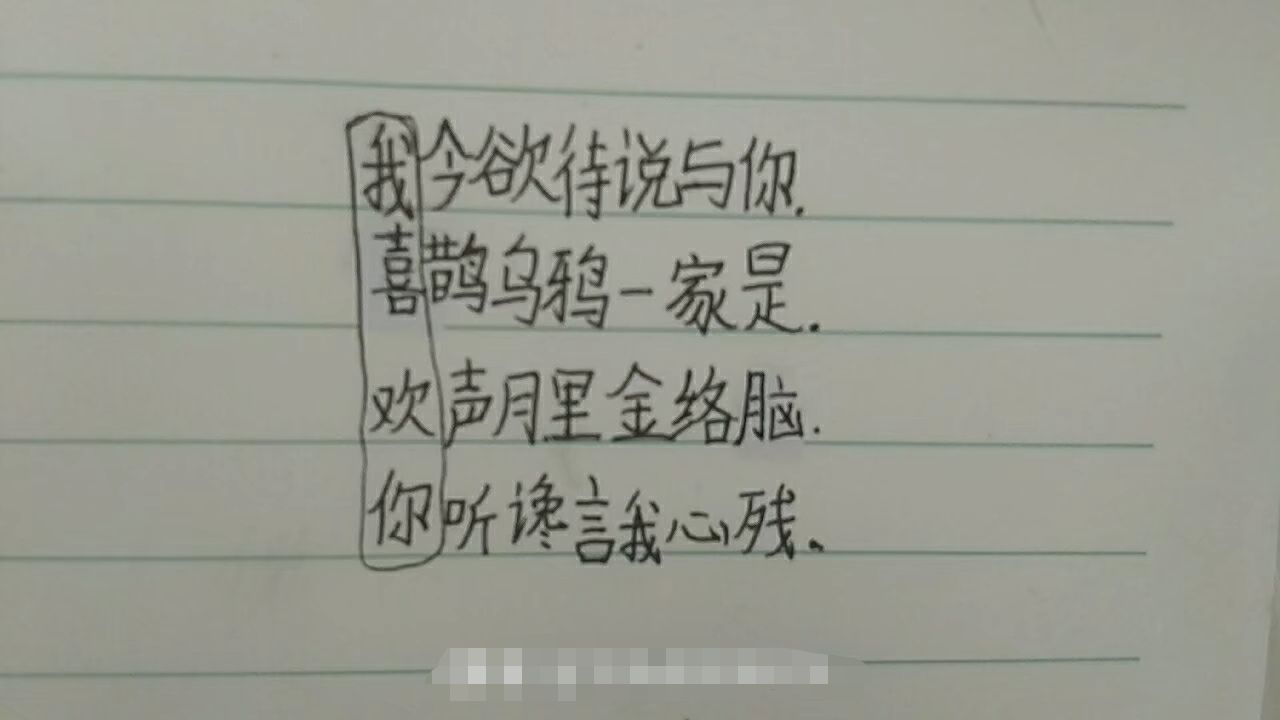 我今欲待说与你.
喜鹊乌鸦一家是.
欢声月里金络脑.
你听谗言我心残.